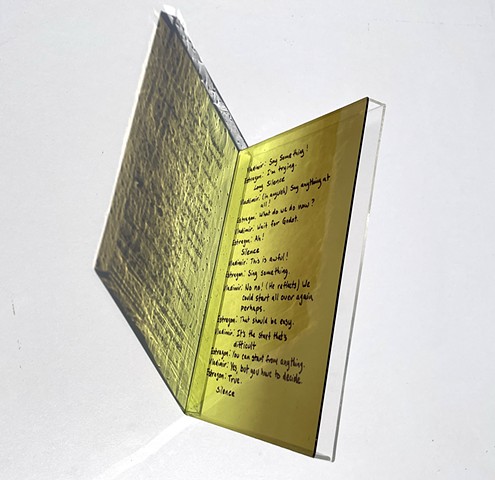 Vladimir: Say something!
Estragon: I'm trying.
Long Silence
Vladimir: (in anguish) Say anything at
all!
Estragon: What do we do now?
Vladimir: Wait for Godot.
Estragon: Ah!
Silence
Vladimir: This is awful!
Estragon: Sing something.
Vladimir: No no! (He reflects) We
could start all over again
perhaps.
Estragon: That should be easy.
Vladimir: It's the start that's
difficult
Estragon: You can start from anything.
Vladimir: Yes, but you have to decide.
Estragon: True.
Silence